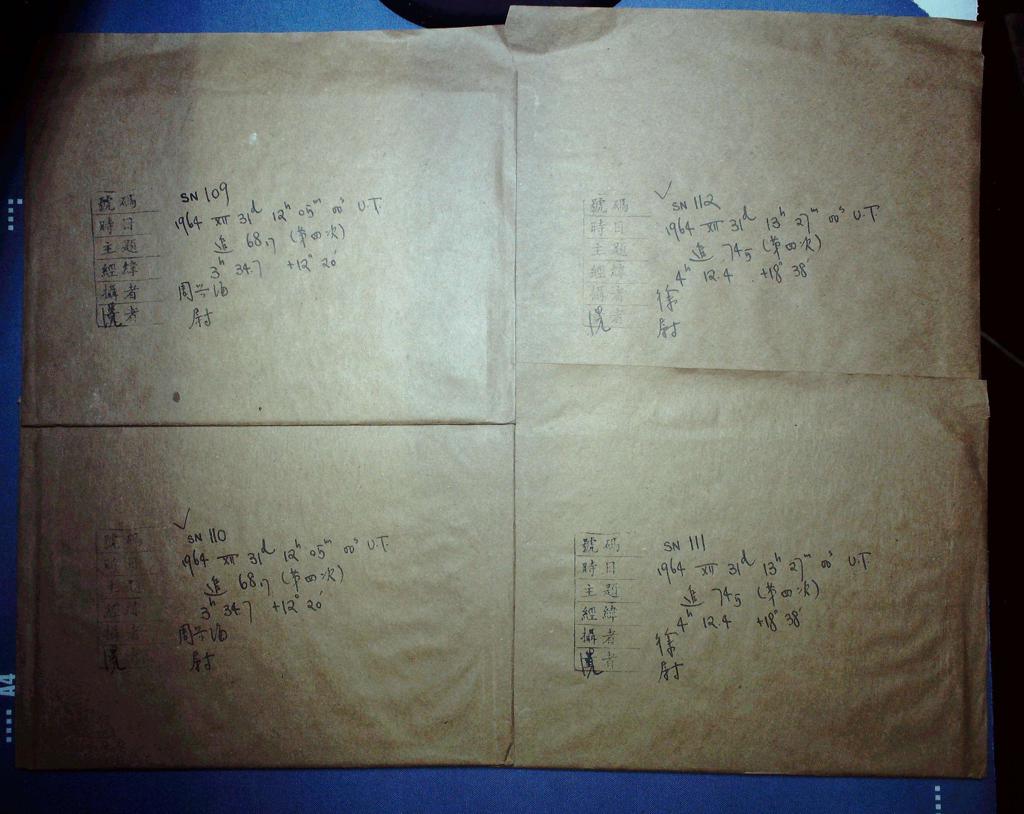 號碼 SN 109
時日 1964 XII 31d 12h 05m 00s U.T.
主題 追 68,7 (第四次)
經緯 3h 34.7 +12° 20'
攝者 周兴海
者 尉
✓
號碼 SN 112
時日 1964 XII 31d 13h 27m 00s U.T.
主題 追 745 (第四次)
經緯 4h 12.4 +18° 38'
攝者 徐
者 尉
✓
號碼 SN 110
時日 1964 XII 31d 12h 05m 00s U.T.
主題 追 68,7 (第四次)
經緯 3h 34.7 +12° 20'
攝者 周兴海
者 尉
號碼 SN 111
時日 1964 XII 31d 13h 27m 00s U.T.
主題 追 745 (第四次)
經緯 4h 12.4 +18° 38'
攝者 徐
者 尉
A4